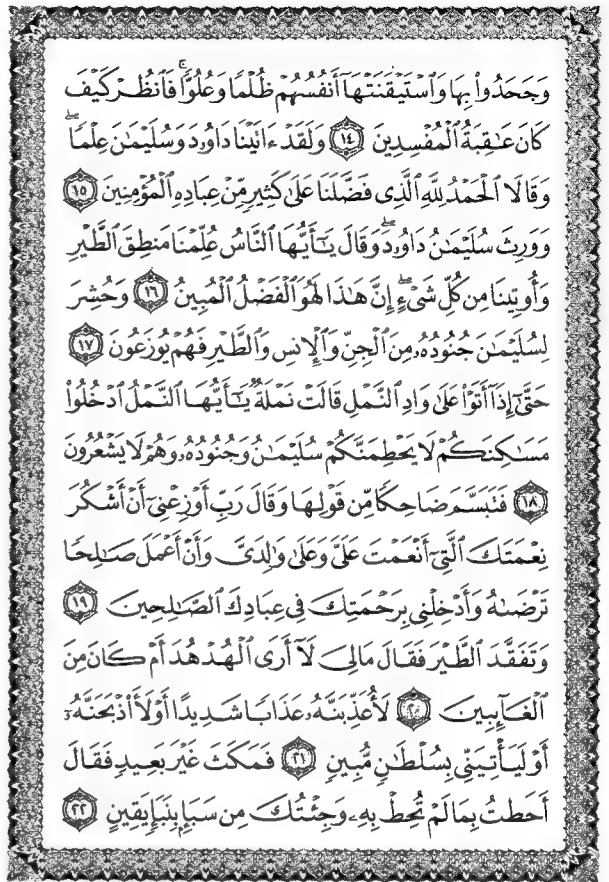 وَجَحَدُوا۟ بِهَا وَٱسْتَيْقَنَتْهَآ أَنفُسُهُمْ ظُلْمًا وَعُلُوًّا ۚ فَٱنظُرْ كَيْفَ
كَانَ عَـٰقِبَةُ ٱلْمُفْسِدِينَ ١٤ وَلَقَدْ ءَاتَيْنَا دَاوُۥدَ وَسُلَيْمَـٰنَ عِلْمًا ۖ
وَقَالَا ٱلْحَمْدُ لِلَّهِ ٱلَّذِى فَضَّلَنَا عَلَىٰ كَثِيرٍ مِّنْ عِبَادِهِ ٱلْمُؤْمِنِينَ ١٥
وَوَرِثَ سُلَيْمَـٰنُ دَاوُۥدَ ۖ وَقَالَ يَـٰٓأَيُّهَا ٱلنَّاسُ عُلِّمْنَا مَنطِقَ ٱلطَّيْرِ
وَأُوتِينَا مِن كُلِّ شَىْءٍ ۖ إِنَّ هَـٰذَا لَهُوَ ٱلْفَضْلُ ٱلْمُبِينُ ١٦ وَحُشِرَ
لِسُلَيْمَـٰنَ جُنُودُهُۥ مِنَ ٱلْجِنِّ وَٱلْإِنسِ وَٱلطَّيْرِ فَهُمْ يُوزَعُونَ ١٧
حَتَّىٰٓ إِذَآ أَتَوْا۟ عَلَىٰ وَادِ ٱلنَّمْلِ قَالَتْ نَمْلَةٌ يَـٰٓأَيُّهَا ٱلنَّمْلُ ٱدْخُلُوا۟
مَسَـٰكِنَكُمْ لَا يَحْطِمَنَّكُمْ سُلَيْمَـٰنُ وَجُنُودُهُۥ وَهُمْ لَا يَشْعُرُونَ
١٨ فَتَبَسَّمَ ضَاحِكًا مِّن قَوْلِهَا وَقَالَ رَبِّ أَوْزِعْنِىٓ أَنْ أَشْكُرَ
نِعْمَتَكَ ٱلَّتِىٓ أَنْعَمْتَ عَلَىَّ وَعَلَىٰ وَٰلِدَىَّ وَأَنْ أَعْمَلَ صَـٰلِحًا
تَرْضَىٰهُ وَأَدْخِلْنِى بِرَحْمَتِكَ فِى عِبَادِكَ ٱلصَّـٰلِحِينَ ١٩
وَتَفَقَّدَ ٱلطَّيْرَ فَقَالَ مَالِىَ لَآ أَرَى ٱلْهُدْهُدَ أَمْ كَانَ مِنَ
ٱلْغَآئِبِينَ ٢٠ لَأُعَذِّبَنَّهُۥ عَذَابًا شَدِيدًا أَوْ لَأَا۟ذْبَحَنَّهُۥٓ
أَوْ لَيَأْتِيَنِّى بِسُلْطَـٰنٍ مُّبِينٍ ٢١ فَمَكَثَ غَيْرَ بَعِيدٍ فَقَالَ
أَحَطتُ بِمَا لَمْ تُحِطْ بِهِۦ وَجِئْتُكَ مِن سَبَإٍۭ بِنَبَإٍ يَقِينٍ ٢٢